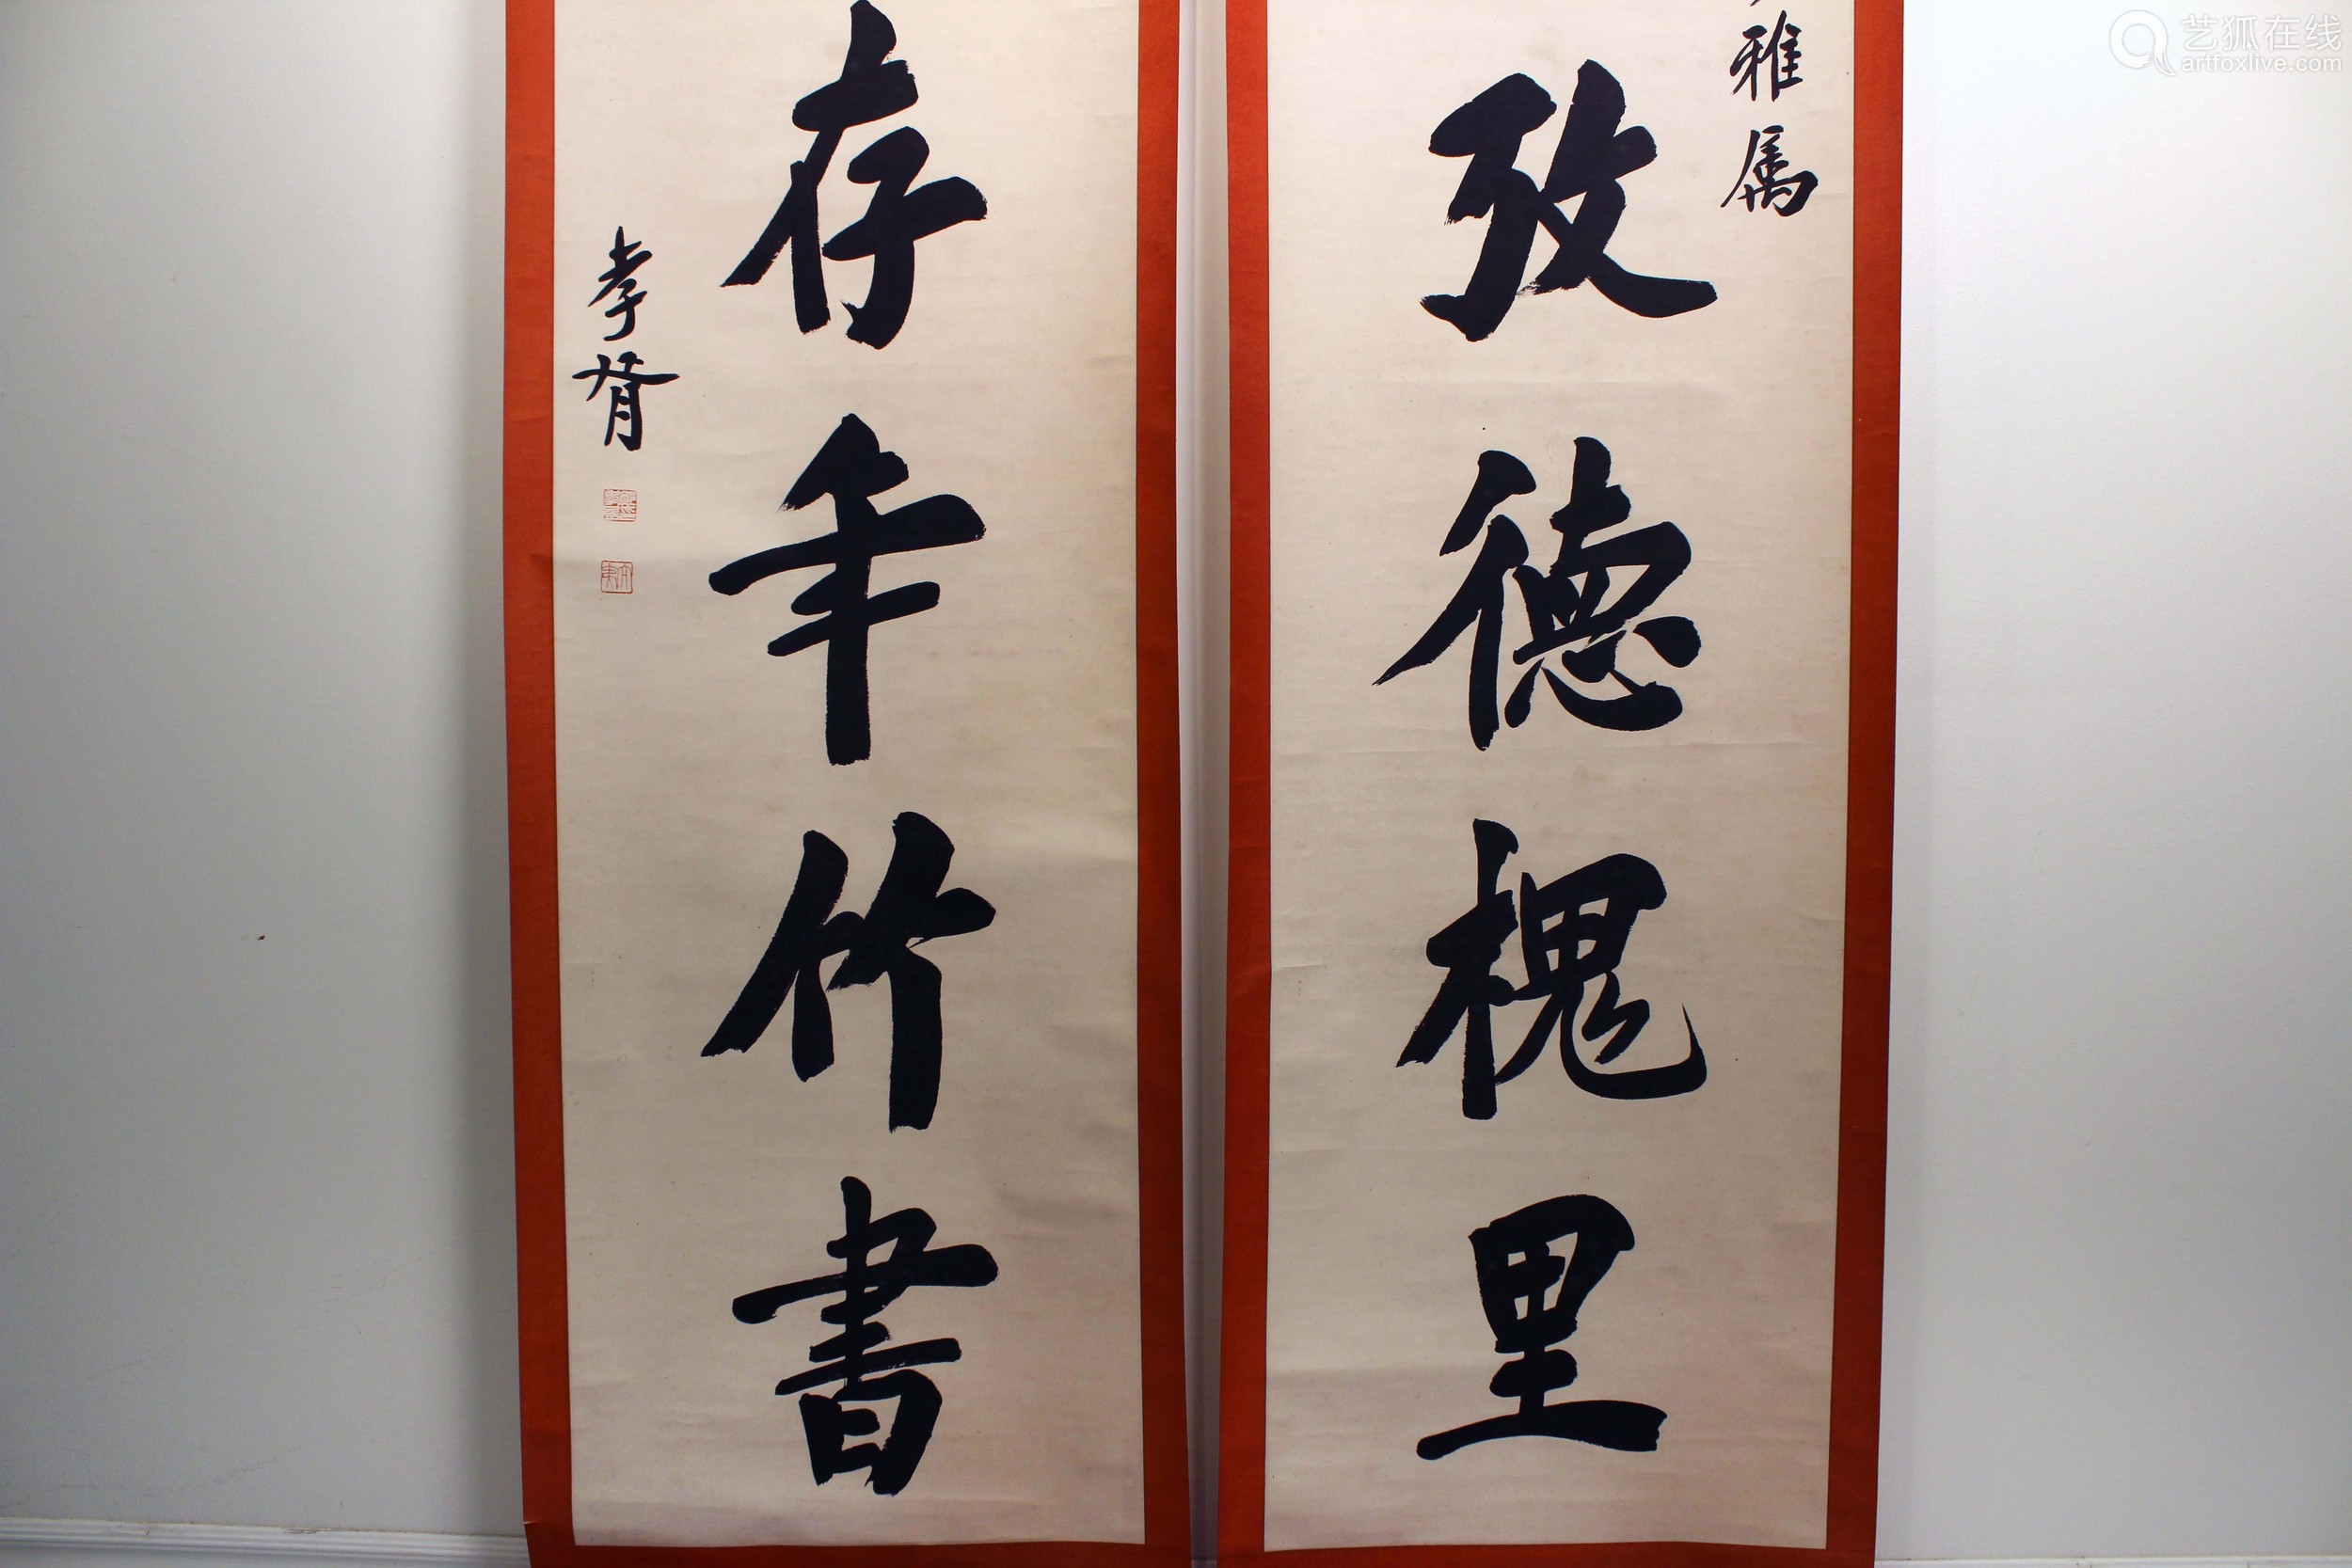 雅属
攷德槐里
存年竹書
孝胥
艺狐在线
artfoxlive.com